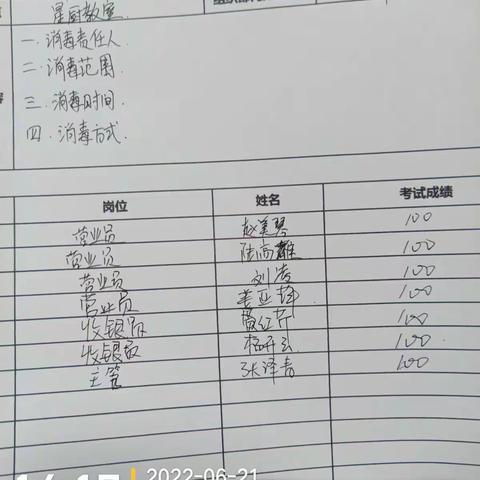 星厨教室
一.消毒责任人
二.消毒范围.
三.消毒时间.
四.消毒方式.
岗位 姓名 考试成绩
营业员 赵美琴 100
营业员 陆高雄 100
营业员 刘涛 100
营业员 姜亚 100
收银员 黄红芹 100
收银员 杨 100
主管 张泽春 100
2022-06-21